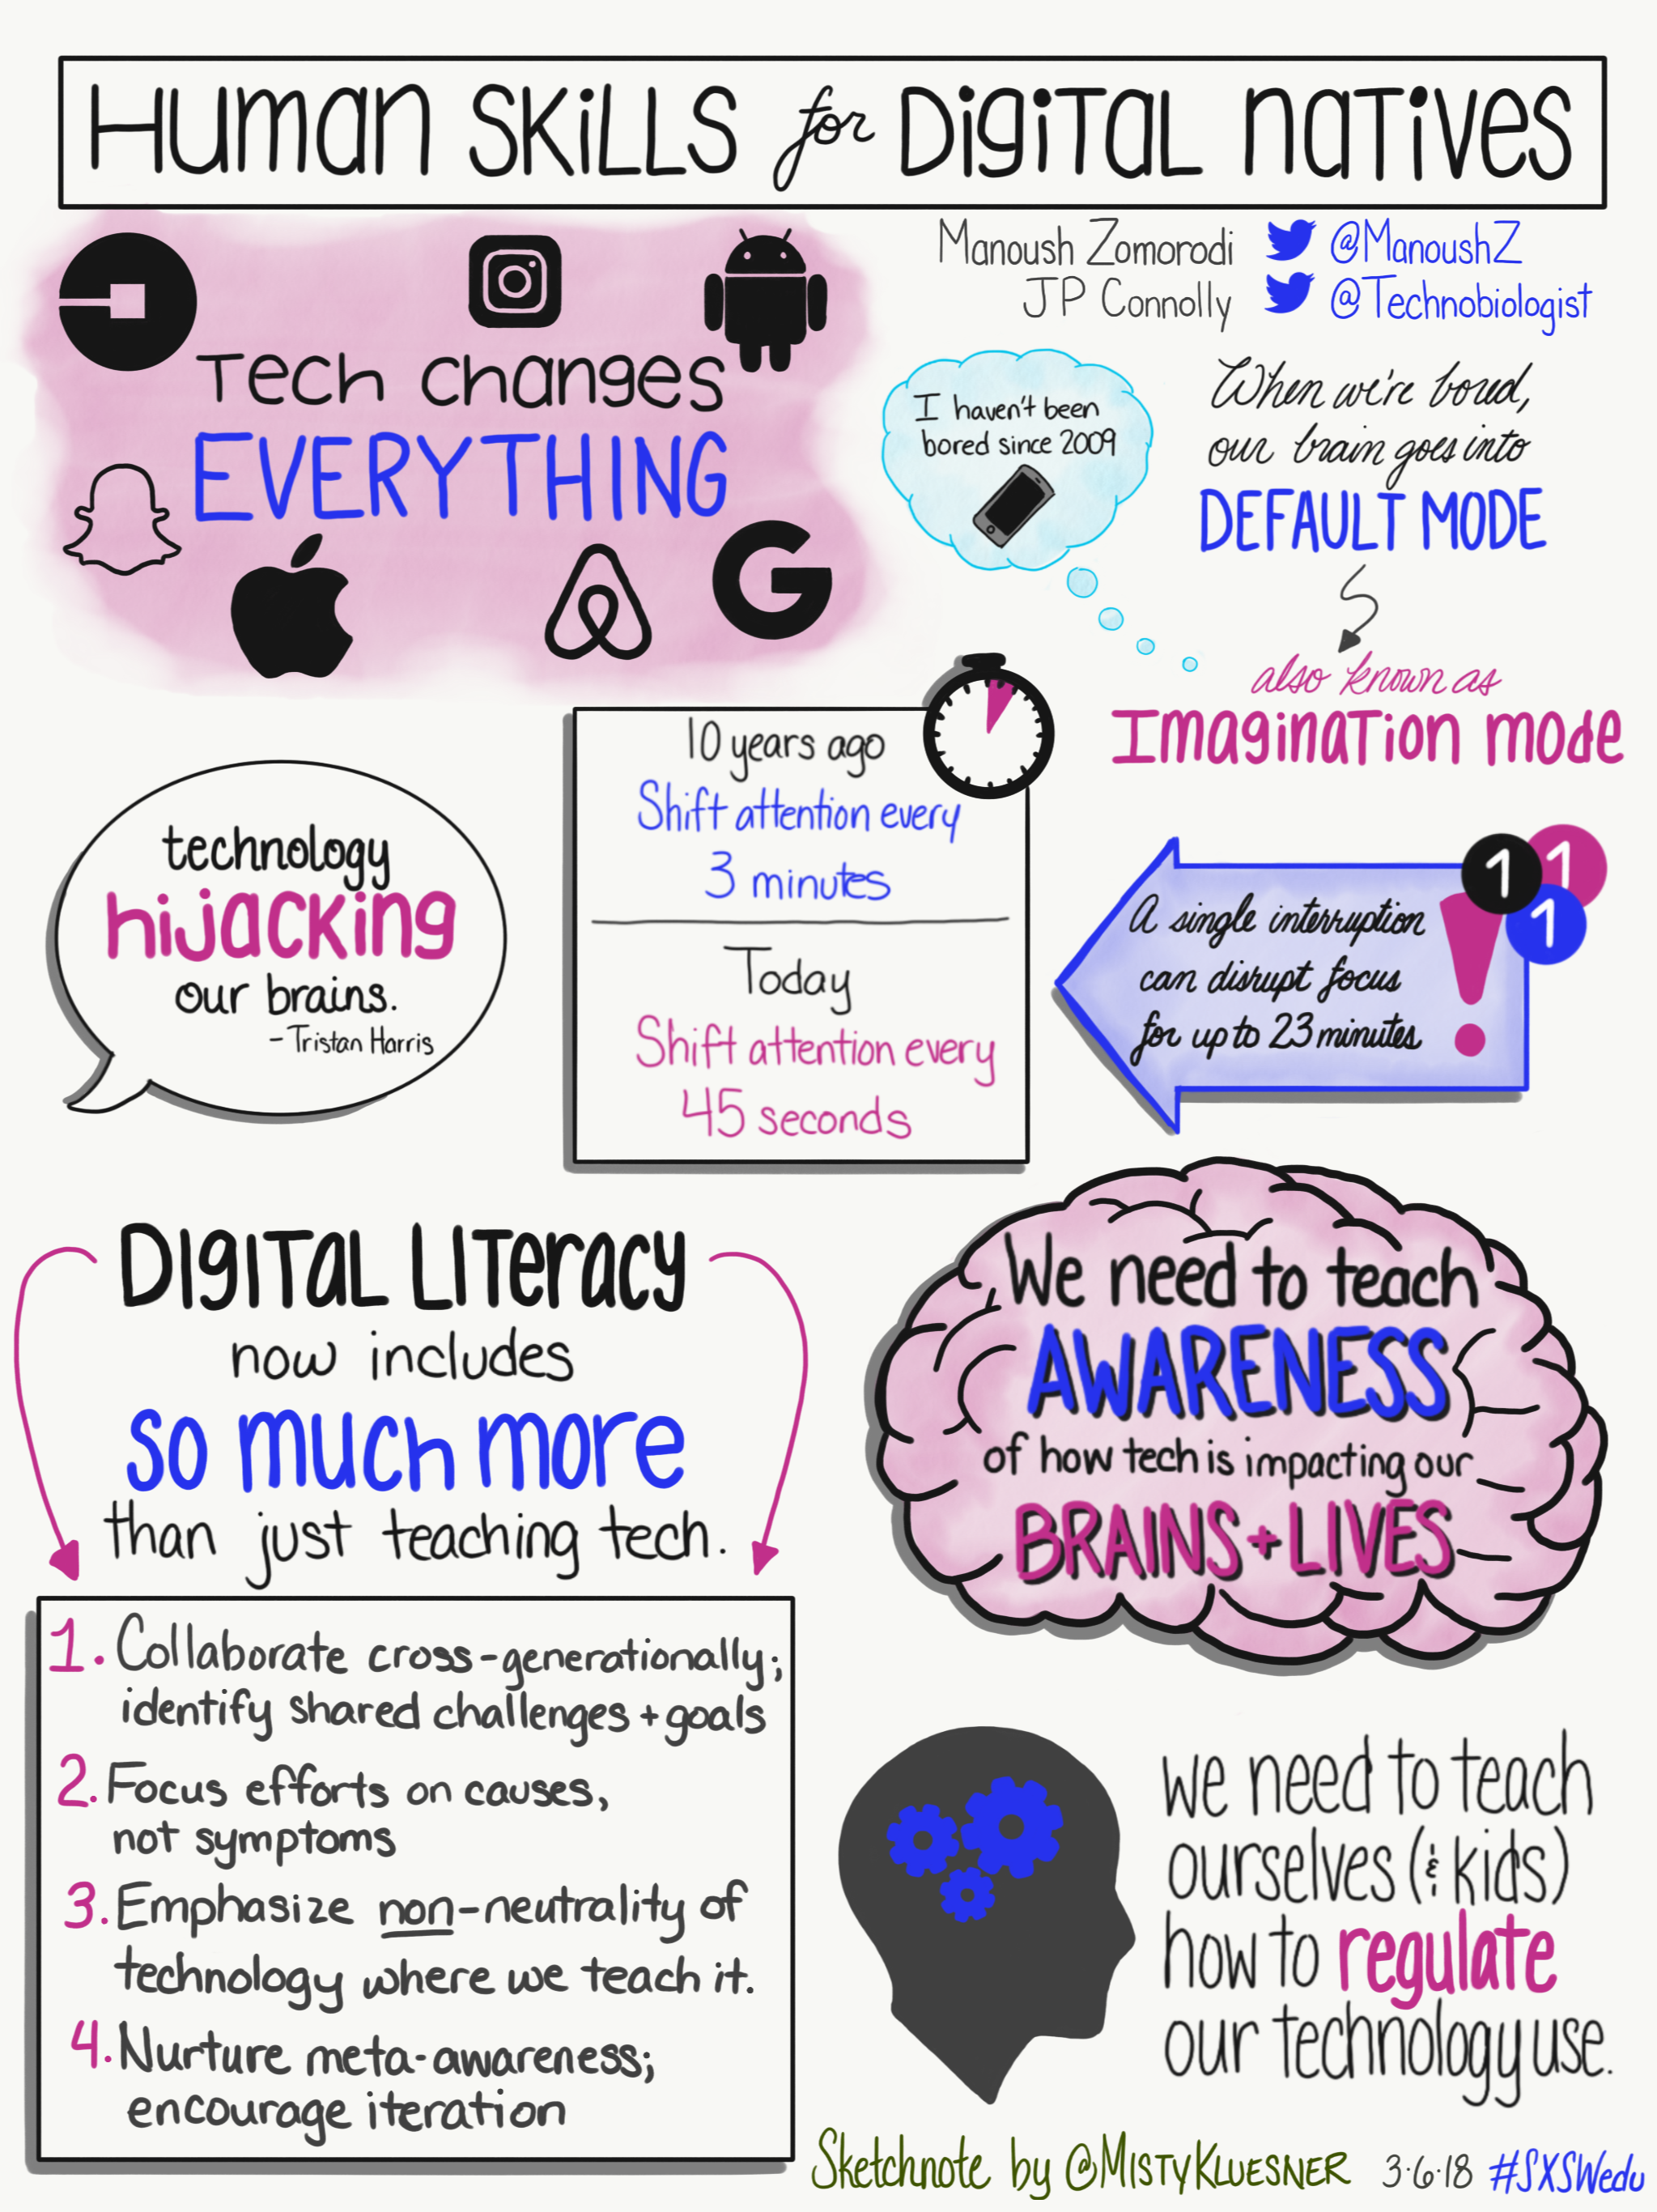 Human Skills for Digital Natives
Manoush Zomorodi @ManoushZ
JP Connolly @Technobiologist
Tech changes
EVERYTHING
I haven't been
bored since 2009
When we're bored,
our brain goes into
DEFAULT MODE
also known as
Imagination mode
technology
hijacking
our brains.
- Tristan Harris
10 years ago
Shift attention every
3 minutes
Today
Shift attention every
45 seconds
A single interruption
can disrupt focus
for up to 23 minutes
!
1
1
1
Digital Literacy
now includes
so much more
than just teaching tech.
1. Collaborate cross-generationally;
identify shared challenges + goals
2. Focus efforts on causes,
not symptoms
3. Emphasize non-neutrality of
technology where we teach it.
4. Nurture meta-awareness;
encourage iteration
We need to teach
AWARENESS
of how tech is impacting our
BRAINS + LIVES
We need to teach
ourselves (& kids)
how to regulate
our technology use.
Sketchnote by @MistyKluesner 3·6·18 #SXSWedu